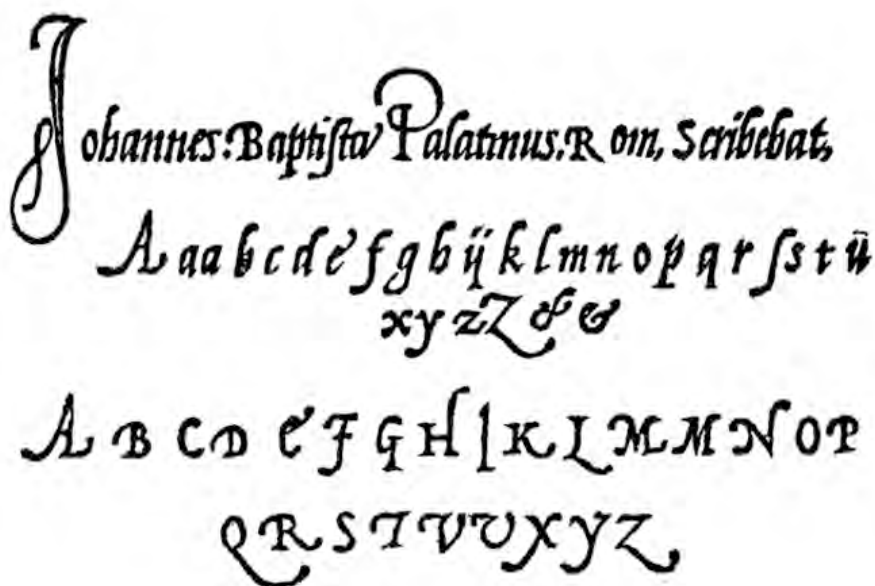 Johannes: Baptiſta Palatinus. Rom, Scribebat,
A a a b c d e f g h ij k l m n o p q r ſ s t ü
x y z Z & &
A B C D E F G H I K L M M N O P
Q R S T V U X Y Z